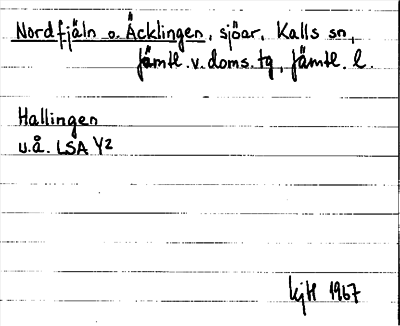 Nordfjäln o. Äcklingen, sjöar, Kalls sn,
Jämtl. v. doms. tg, Jämtl. l.
Hallingen
u.å. LSA Y2
kjH 1967